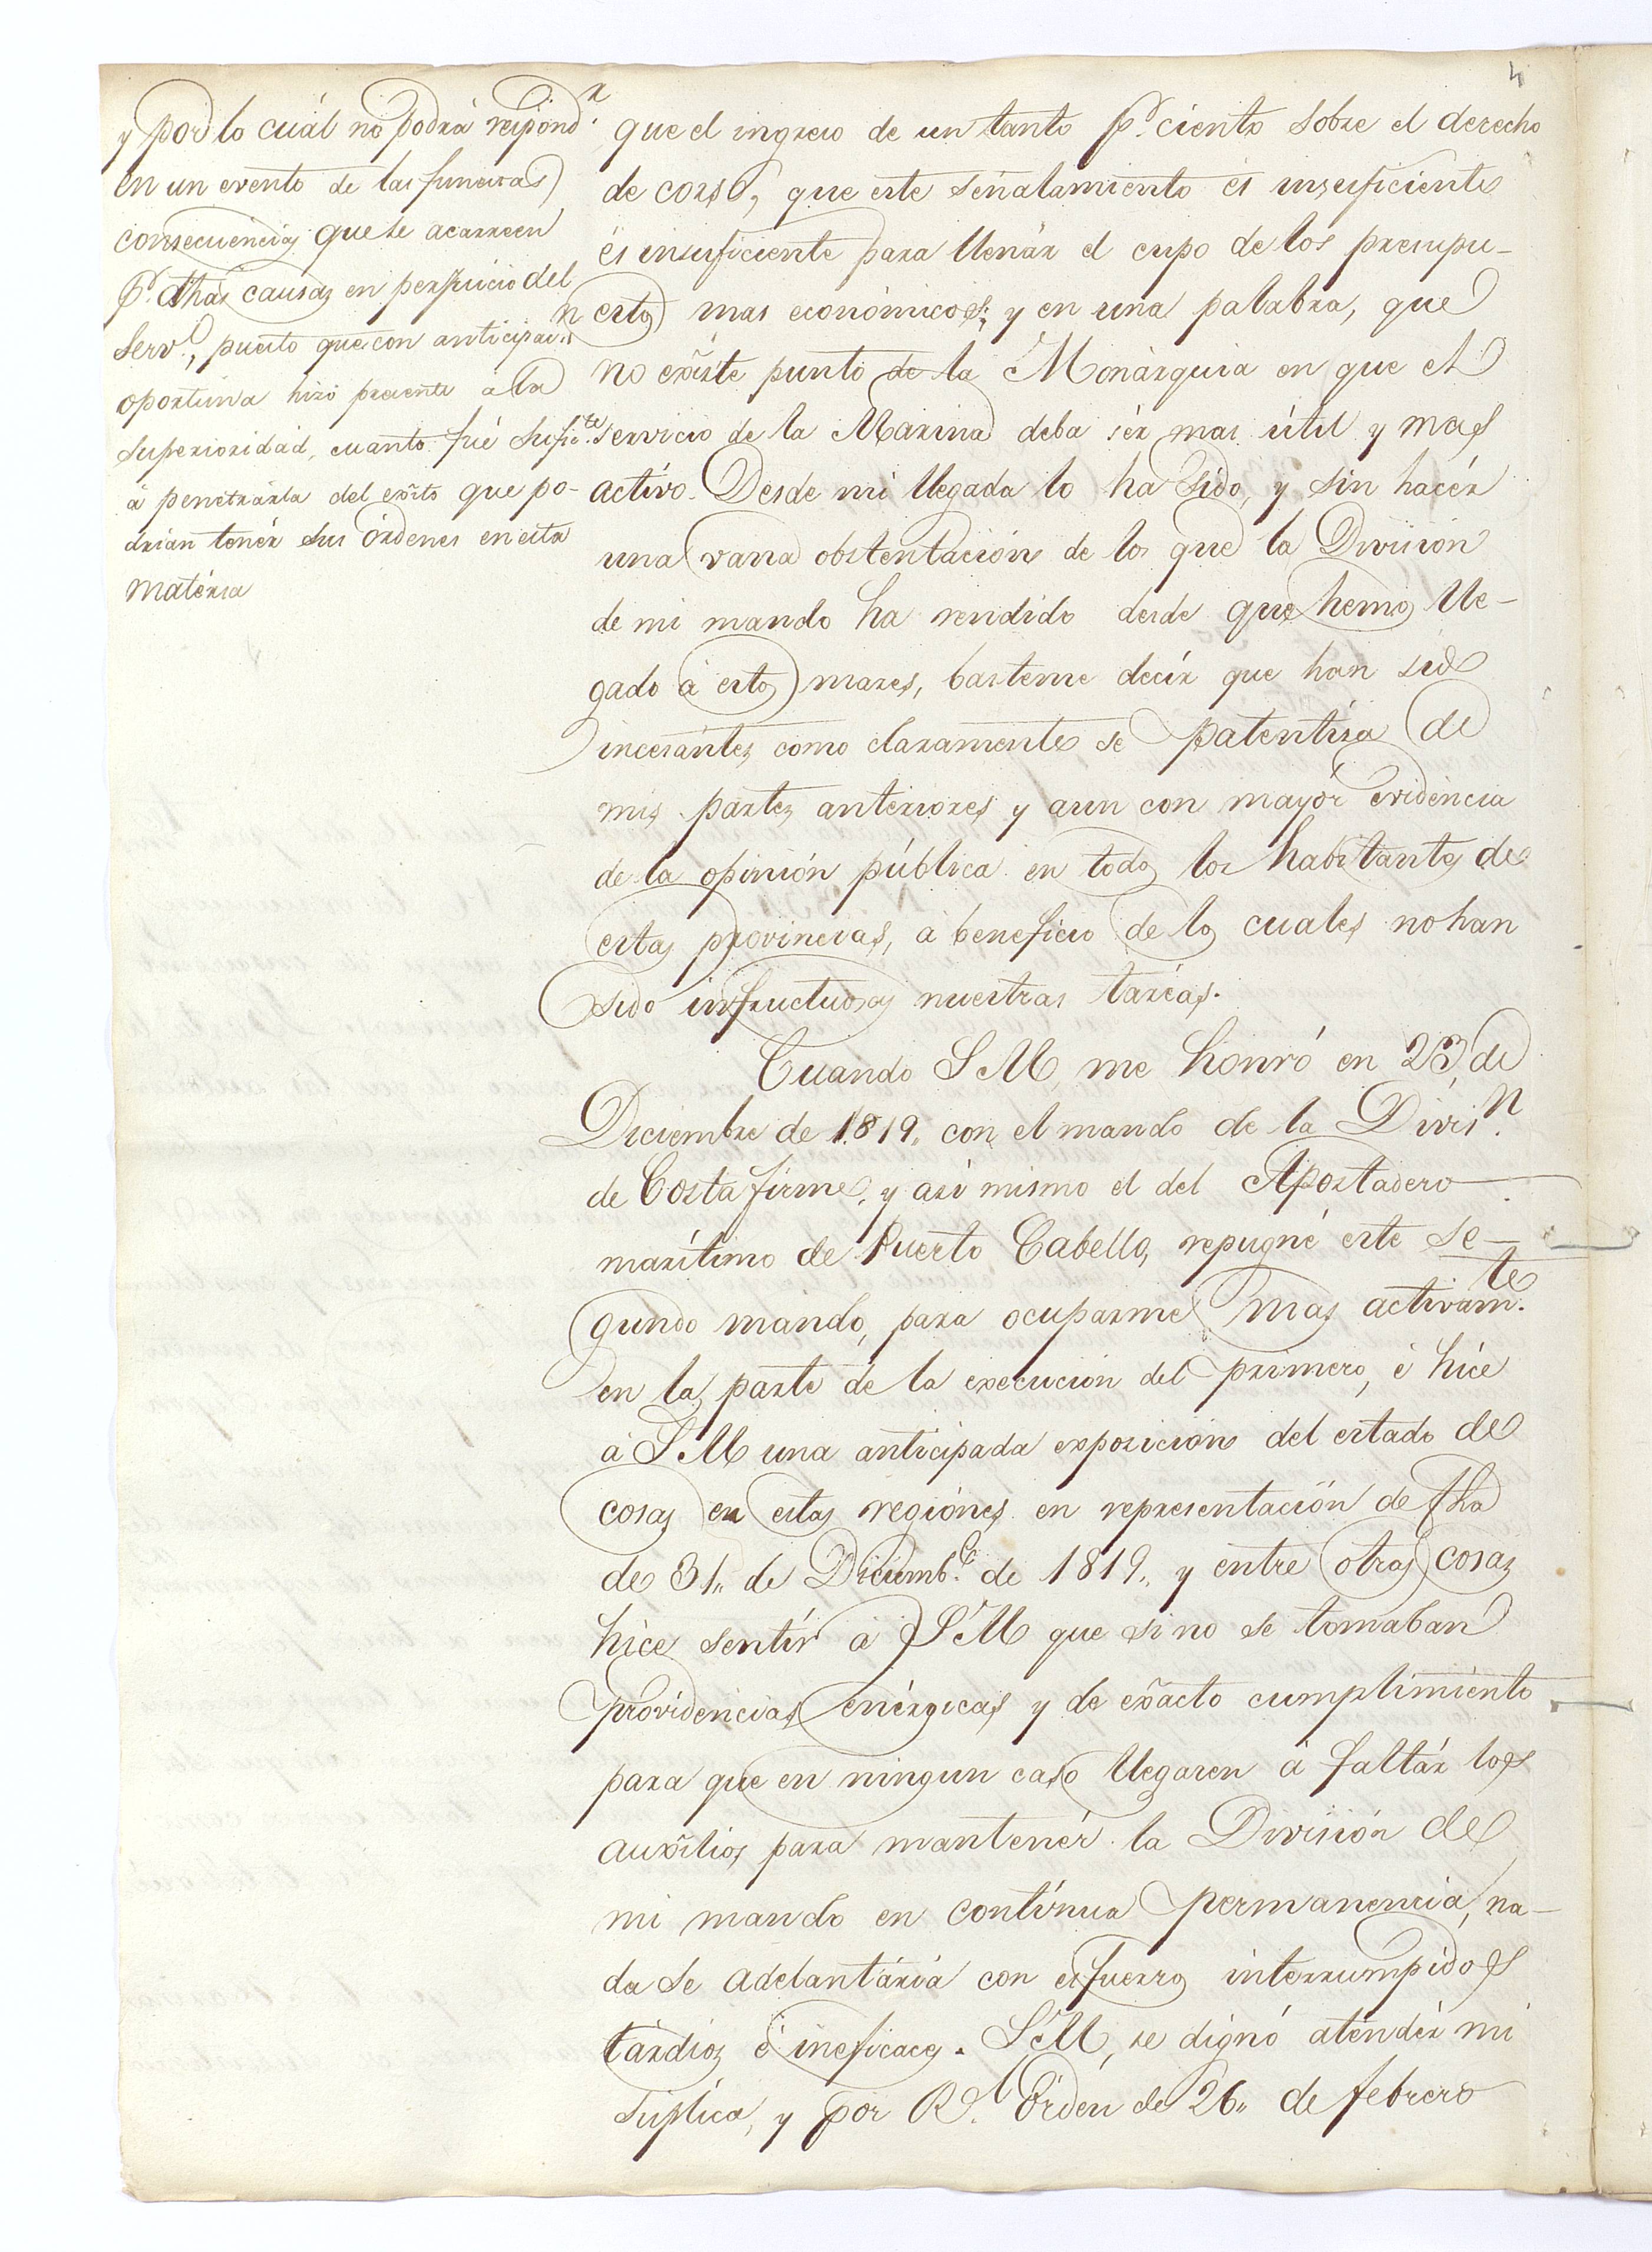 4
y por lo cuál no podrá respond.r
en un evento de las funestas
consecuencias que se acarreen
p.r dhas causas en perjuicio del
Serv.o, puesto que con anticipac.n
oportuna hizo presente a la
superioridad, cuanto fué sufic.te
á penetrarla del exîto que po-
drian tenér sus órdenes en esta
matéria
que el ingreso de un tanto p.r ciento sobre el derecho
de corso, que este señalamiento és insuficiente
és insuficiente para llenár el cupo de los presupu-
estos mas económicos; y en una palabra, que
no exîste punto de la Monárquia en que el
servicio de la Marina deba sér mas útil y mas
activo. Desde mi llegada lo ha sido, y sin hacér
una vana obstentación de los que la División
de mi mando ha rendido desde que hemos lle-
gado á estos mares, basteme decír que han sido
incesántes como claramente se patentiza de
mis partes anteriores y aun con mayór evidéncia
de la opinión pública en todos los habitantes de
estas provincias, á beneficio de los cuales no han
sido infructuosas nuestras taréas.
Cuando S M, me honró en 23, de
Diciembre de 1819,, con el mando de la Divis.n
de Costa firme, y asi mismo el del Apostadero
marítimo de Puerto Cabello, repugné este se-
gundo mando, para ocuparme mas activam.te
en la parte de la execución del primero, é híce
á S M una anticipada exposición del estado de
cosas en estas regiónes en representación de fha
de 31,, de Diciemb.e de 1819,, y entre otras cosas
híce sentír á S M que si no se tomaban
providencias enérgicas y de exâcto cumplimiento
para que en ningun caso llegaren á faltár los
auxîlios para mantenér la División de
mi mando en contínua permanencia, na-
da se adelantária con esfuerzos interrumpidos
tárdios é ineficaces. S M, se dignó aténdér mi
súplica, y por R.l Órden de 26,, de febrero